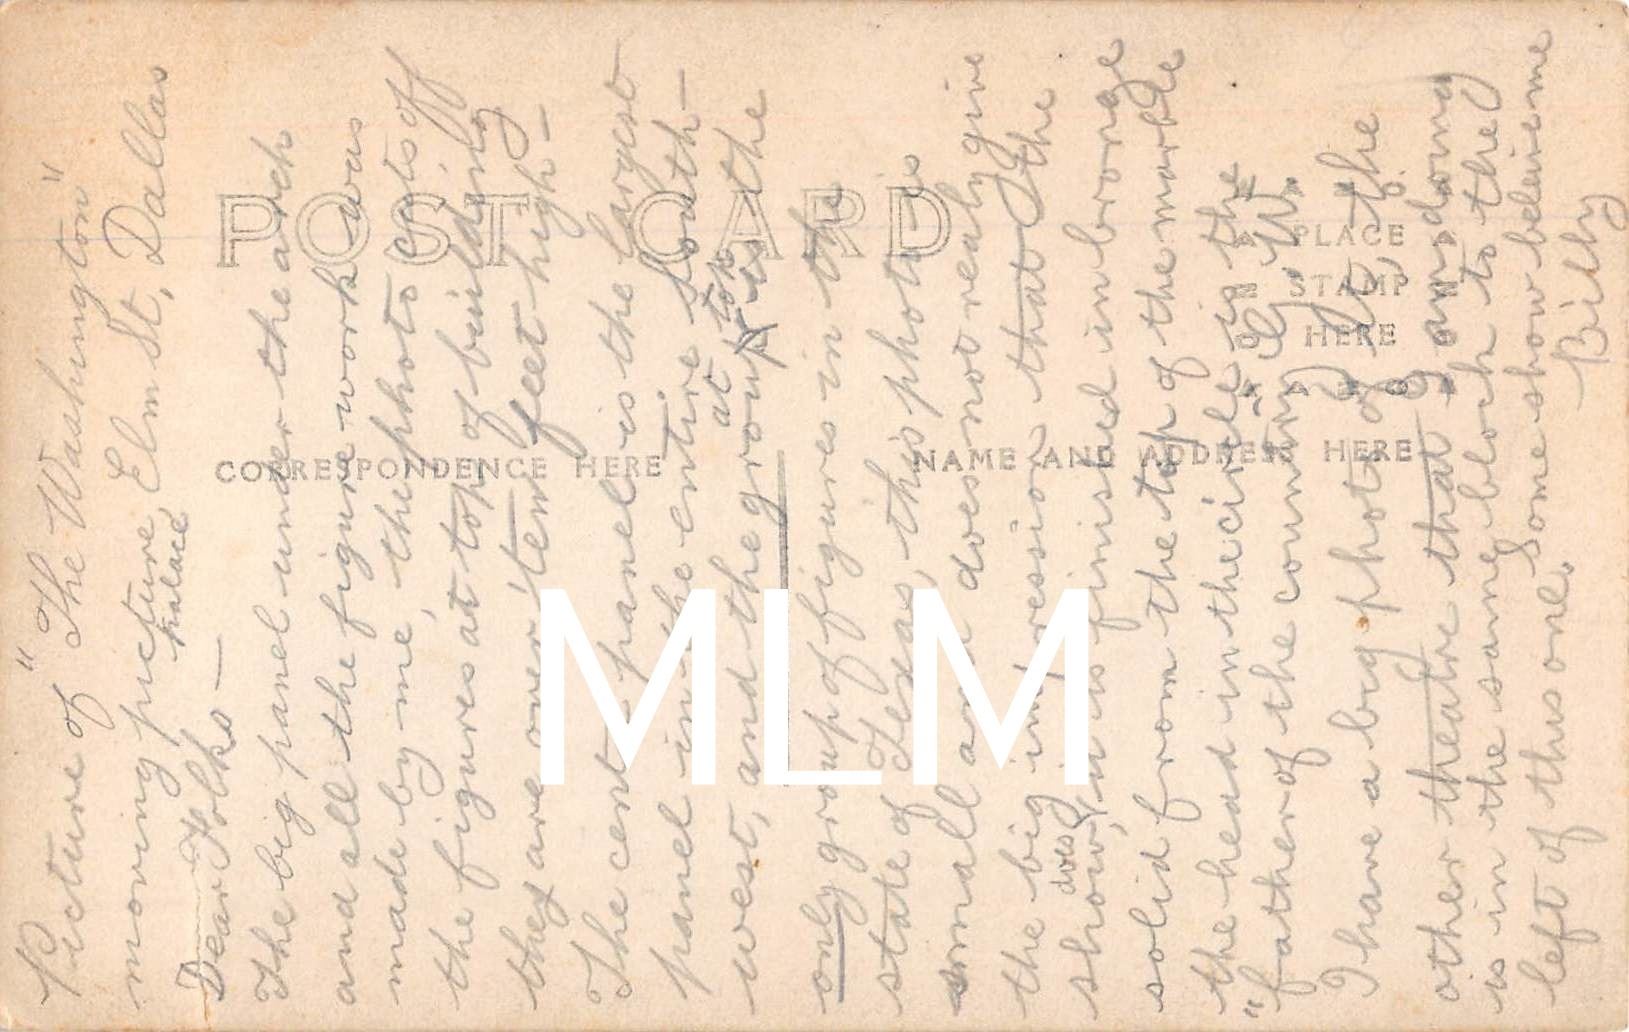 Picture of "The Washington"
moving picture palace, Elm St, Dallas
Dear Folks —
The big panel under the arch
and all the figure work was
made by me, the photo cuts off
the figures at top of building
they are over ten feet high —
The cent- panel is the largest
panel in the entire South-
west, and the group at top is the
only group of figures in the
state of Texas, this photo is
small and does not really give
the big impression that the
does
show, it is finished in bronze
solid from the top of the marble
the head in the circle is the
"father of the country G.W."
I have a big photo of it, the
other theatre that your doing
is in the same block to the
left of this one. Some show believe me
Billy
POST CARD
CORRESPONDENCE HERE
NAME AND ADDRESS HERE
PLACE
STAMP
HERE
MLM